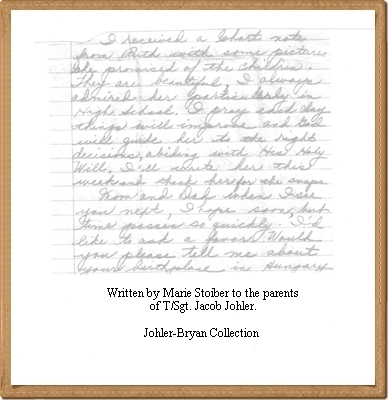 I received a short note
from Ruth with some pictures
she promised of the children.
They are beautiful, I always
admired her particularly in
High School. I pray each day
things will improve and God
will guide her to the right
decisions, abiding with His Holy
Will. I'll write her this
weekend thank her for the snaps.
Mom and Dad when I see
you next, I hope soon, but
time passes so quickly. I'd
like to ask a favor. Would
you please tell me about
your birthplace in Hungary
Written by Marie Stoiber to the parents
of T/Sgt. Jacob Johler.
Johler-Bryan Collection